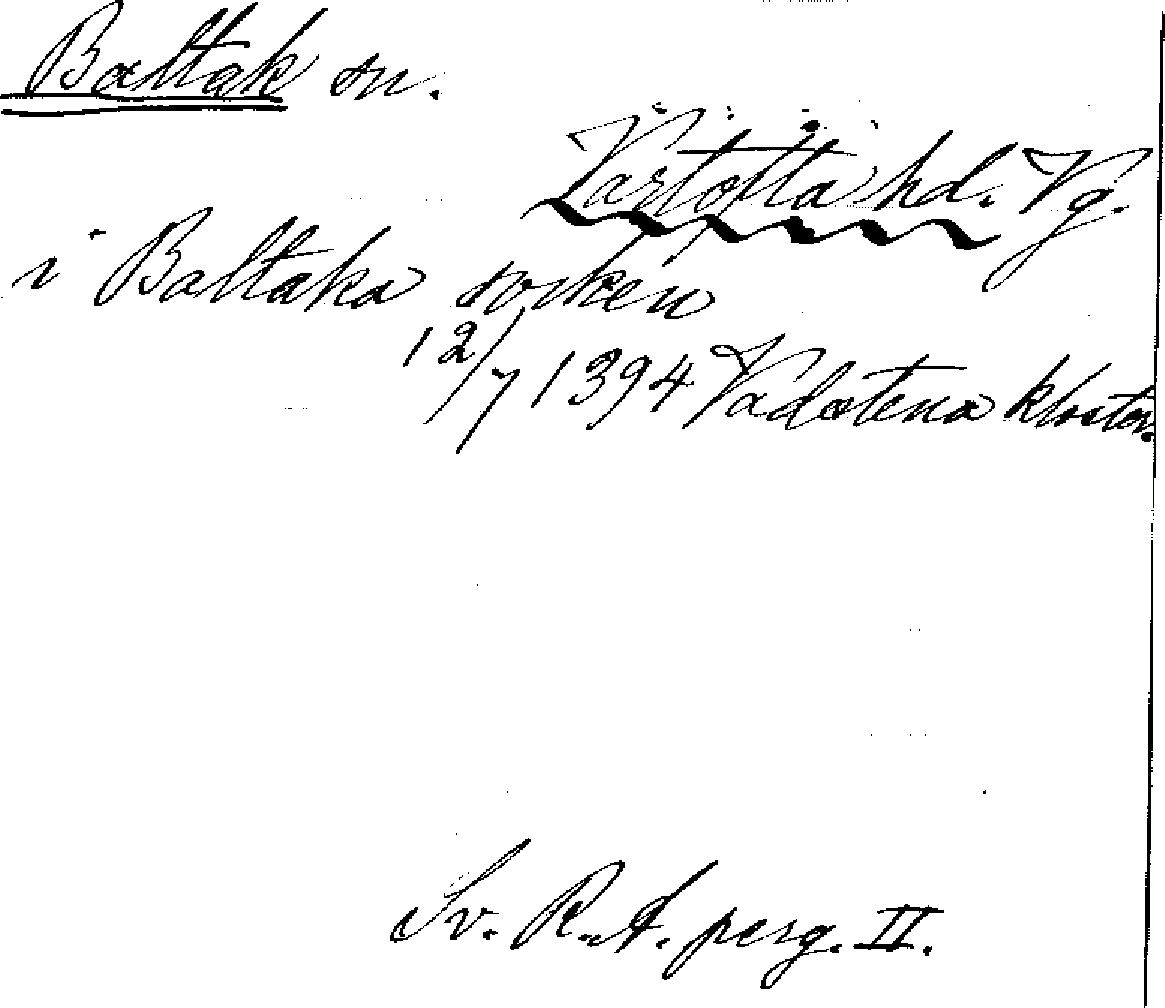 Baltak sn.
Vartofta hd. Vg.
i Baltaka sorken
12/7 1394 Vadstena kloster.
Sv. R.A. perg. II.